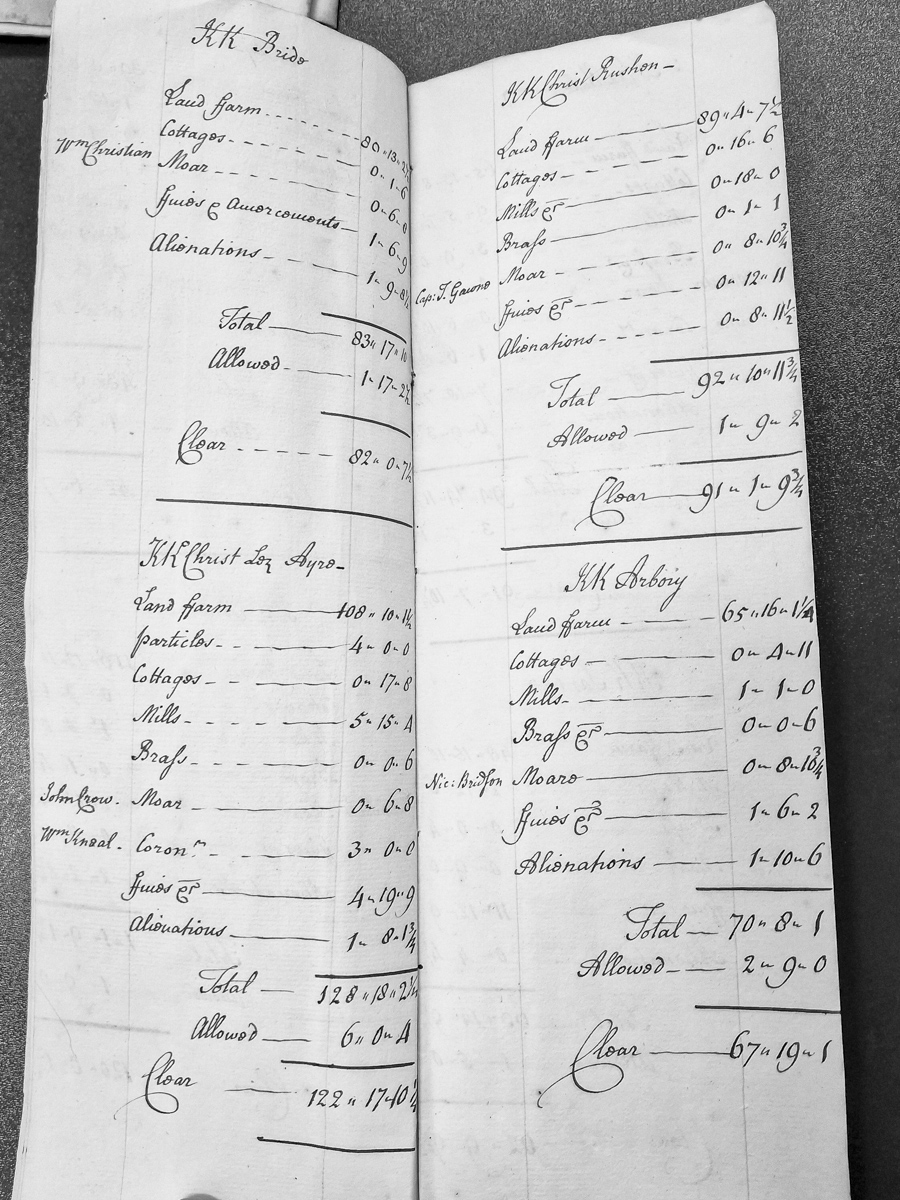 KK Bride
Land ffarm 80 " 13 " 2½
Cottages 0 " 1 " 6
Wm Christian Moar 0 " 6 " 8
ffines & Amercements 1 " 6 " 9
Alienations 1 " 9 " 8½
Total 83 " 17 " 10
Allowed 1 " 17 " 2½
Clear 82 " 0 " 7½
KK Christ Lez Ayre
Land ffarm 108 " 10 " 1½
particles 4 " 0 " 0
Cottages 0 " 17 " 8
Mills 5 " 15 " 4
Brass 0 " 0 " 6
John Crow. Moar 0 " 6 " 8
Wm Kneal. Coronr. 3 " 0 " 0
ffines &c 4 " 19 " 9
Alienations 1 " 8 " 1¾
Total 128 " 18 " 2¼
Allowed 6 " 0 " 4
Clear 122 " 17 " 10¼
KK Christ Rushen
Land ffarm 89 " 4 " 7½
Cottages 0 " 16 " 6
Mills &c 0 " 18 " 0
Brass 0 " 1 " 1
Cap: J. Gawne Moar 0 " 8 " 10¾
ffines &c 0 " 12 " 11
Alienations 0 " 8 " 11½
Total 92 " 10 " 11¾
Allowed 1 " 9 " 2
Clear 91 " 1 " 9¾
KK Arbory
Land ffarm 65 " 16 " 1¼
Cottages 0 " 4 " 11
Mills 1 " 1 " 0
Brass &c 0 " 0 " 6
Nic: Bridson Moare 0 " 8 " 10¾
ffines &c 1 " 6 " 2
Alienations 1 " 10 " 6
Total 70 " 8 " 1
Allowed 2 " 9 " 0
Clear 67 " 19 " 1